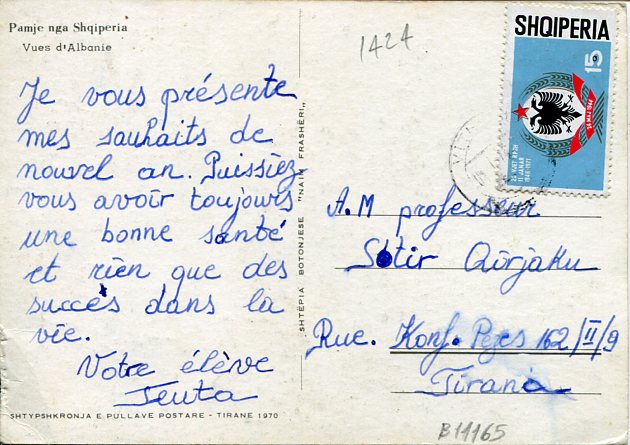 Pamje nga Shqiperia
Vues d'Albanie
1424
Je vous présente
mes souhaits de
nouvel an. Puissiez
vous avoir toujours
une bonne santé
et rien que des
succès dans la
vie.
Votre élève
Teuta
SHTYPSHKRONJA E PULLAVE POSTARE - TIRANE 1970
SHTËPIA BOTONJESE "NAIM FRASHËRI"
SHQIPERIA
15
25 VJET RPSH
11 JANAR
1946-1971
A.M professeur
Sotir Qirjaku
Rue. Konf. Pezes 162/II/9
Tirana
B11165